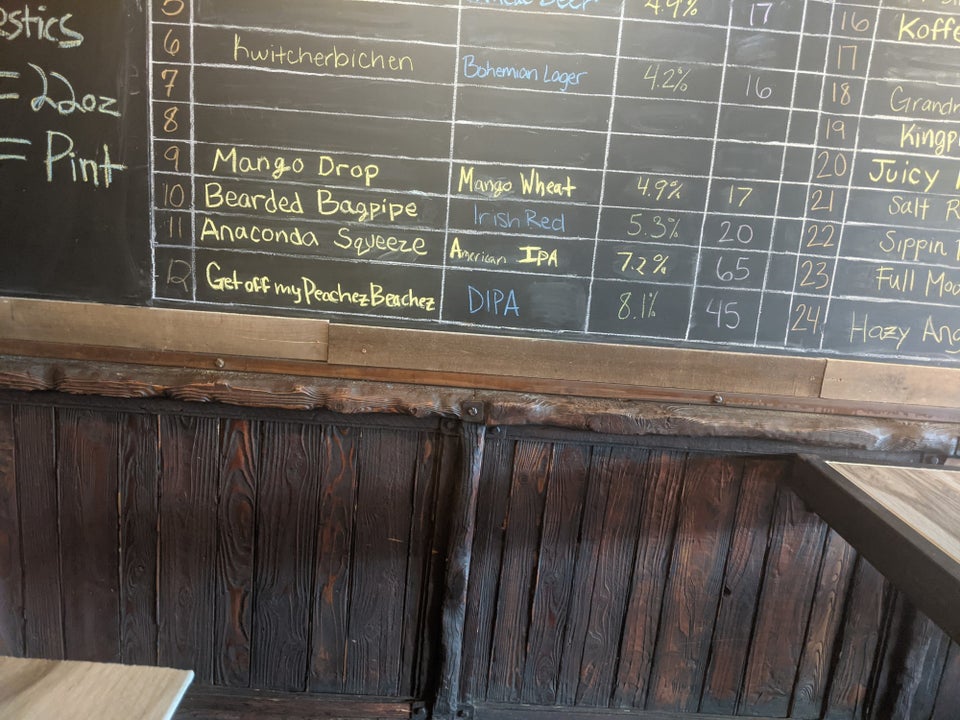 estics
= 22oz
= Pint
5 4.9% 17
6 Kwitcherbichen Bohemian Lager 4.2% 16
7
8
9 Mango Drop Mango Wheat 4.9% 17
10 Bearded Bagpipe Irish Red 5.3% 20
11 Anaconda Squeeze American IPA 7.2% 65
12 Get off my Peachez Beachez DIPA 8.1% 45
16 Koffe
17
18 Grandm
19 Kingp
20 Juicy
21 Salt R
22 Sippin
23 Full Moo
24 Hazy Ang